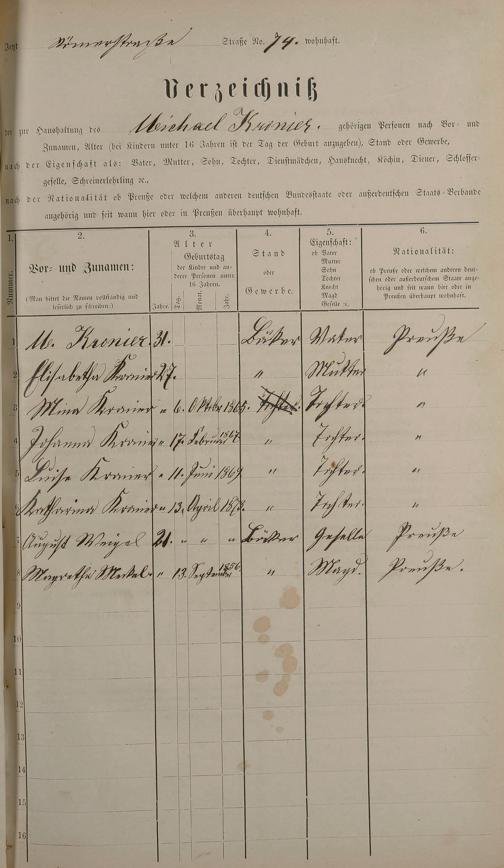 Jetzt Römerstraße Straße No. 74. wohnhaft.
Verzeichniß
der zur Haushaltung des Michael Kronier. gehörigen Personen nach Vor- und
Zunamen, Alter (bei Kindern unter 16 Jahren ist der Tag der Geburt anzugeben), Stand oder Gewerbe,
nach der Eigenschaft als: Vater, Mutter, Sohn, Tochter, Dienstmädchen, Hausknecht, Köchin, Diener, Schlosser-
geselle, Schreinerlehrling ꝛc.,
nach der Nationalität ob Preuße oder welchem anderen deutschen Bundesstaate oder außerdeutschen Staats-Verbande
angehörig und seit wann hier oder in Preußen überhaupt wohnhaft.
1. 2. 3. 4. 5. 6.
Nummer.
Vor- und Zunamen:
(Man bittet die Namen vollständig und
leserlich zu schreiben.)
Alter
Geburtstag
der Kinder und an-
derer Personen unter
16 Jahren.
Jahre. Tag. Monat. Jahr.
Stand
oder
Gewerbe.
Eigenschaft:
ob Vater
Mutter
Sohn
Tochter
Knecht
Magd
Geselle ꝛc.
Nationalität:
ob Preuße oder welchem anderen deut-
schen oder außerdeutschen Staate ange-
hörig und seit wann hier oder in
Preußen überhaupt wohnhaft.
1 M. Kronier. 31. Bäker Vater Preuße
2 Elisabetha Kronier 27. " Mutter "
3 Mina Kronier " 6. Oktober 1865. Tochter. Tochter. "
4 Johanna Kronier " 17. Februar 1867. " Tochter. "
5 Luise Kronier " 11. Juni 1869. " Tochter. "
6 Katharina Kronier " 13. April 1873. " Tochter. "
7 August Weigel 21. " " " Bäker Geselle Preuße
8 Magretha " 13. September 1856. " Magd. Preuße.
9
10
11
12
13
14
15
16